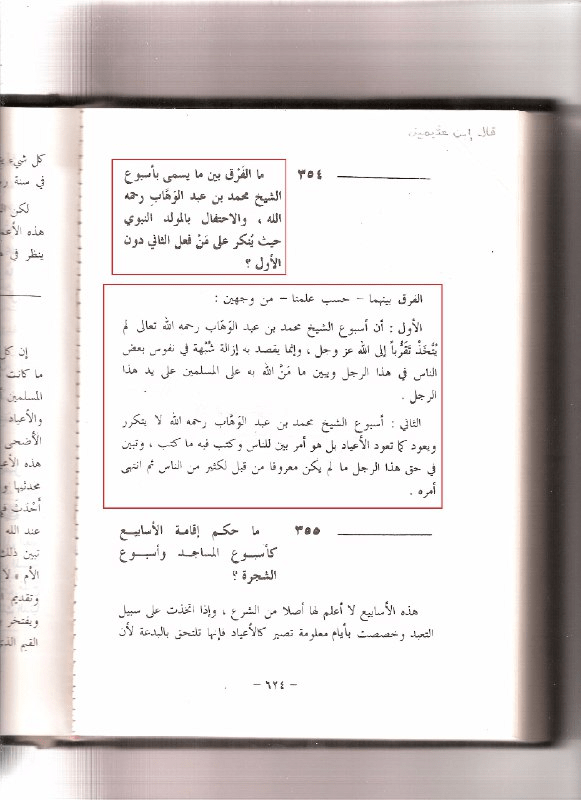 قال ابن عثيمين
٣٥٤ ما الفَرْق بين ما يسمى بأسبوع
الشيخ محمد بن عبد الوَهَّاب رحمه
الله ، والاحتفال بالمولد النبوي
حيث يُنكر على مَنْ فعل الثاني دون
الأول ؟
الفرق بينهما – حسب علمنا – من وجهين :
الأول : أن أسبوع الشيخ محمد بن عبد الوَهَّاب رحمه الله تعالى لم
يُتْخَذْ تَقَرُّباً إلى الله عز وجل ، وإنما يقصد به إزالة شُبْهة في نفوس بعض
الناس في هذا الرجل ويبين ما مَنَّ الله به على المسلمين على يد هذا
الرجل .
الثاني : أسبوع الشيخ محمد بن عبد الوَهَّاب رحمه الله لا يتكرر
ويعود كما تعود الأعياد بل هو أمر بين للناس وكتب فيه ما كتب ، وتبين
في حق هذا الرجل ما لم يكن معروفا من قبل لكثير من الناس ثم انتهى
أمره .
٣٥٥ ما حكم إقامة الأسابيع
كأسبوع المساجد وأسبوع
الشجرة ؟
هذه الأسابيع لا أعلم لها أصلا من الشرع ، وإذا اتخذت على سبيل
التعبد وخصصت بأيام معلومة تصير كالأعياد فإنها تلتحق بالبدعة لأن
– ٦٢٤ –
كل شيء
في سنة
لكن
هذه
ينظر في
إن كل
ما كانت
المسلمين
والأعياد
الأضحى
هذه
محدثيها
أُخْذت
عند الله
تبين ذلك
الأم « لا
وتقديم
ويفتخر
القيم